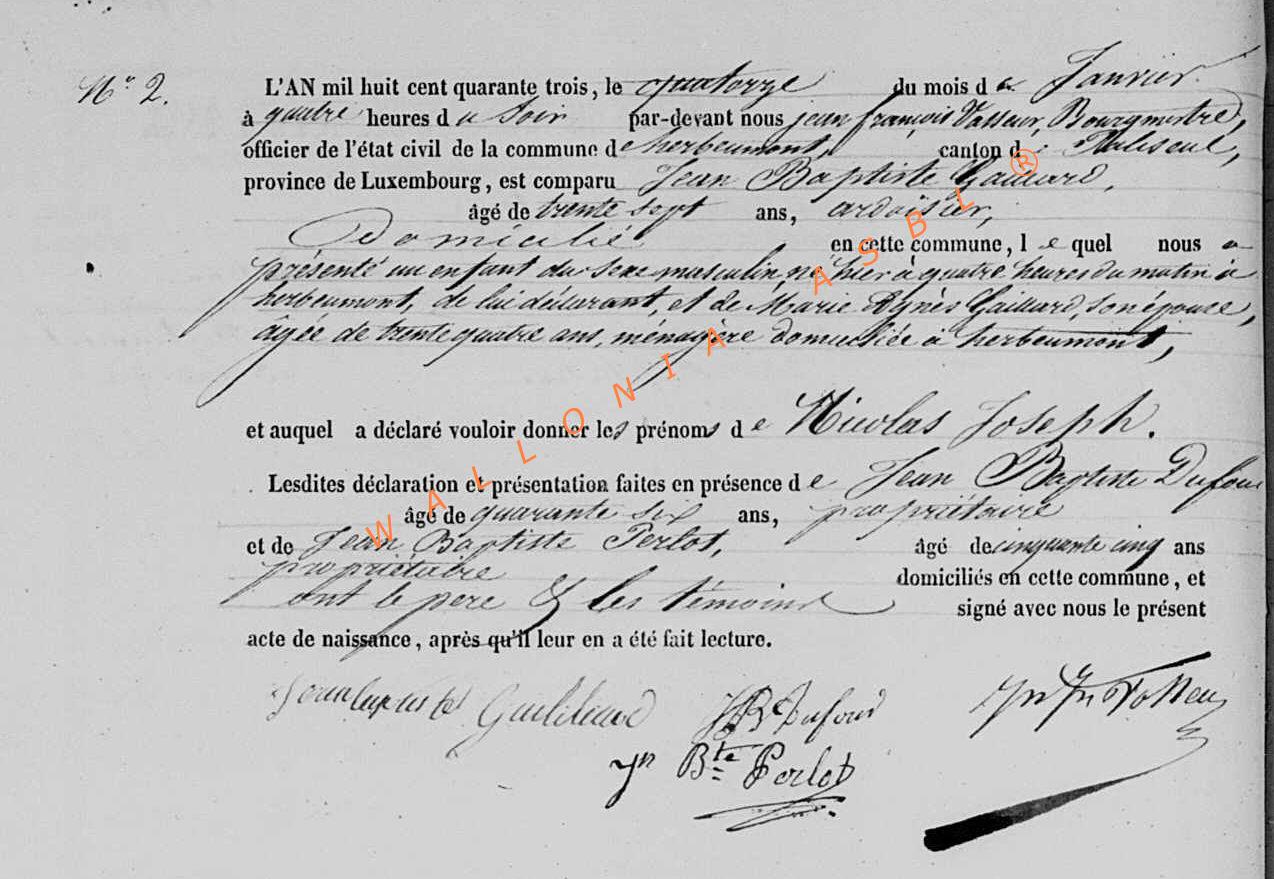 N° 2.
L'AN mil huit cent quarante trois, le quatorze du mois de Janvier.
à quatre heures du Soir par-devant nous jean françois Vasseur, Bourgmestre,
officier de l'état civil de la commune de herbeumont, canton de Paliseul,
province de Luxembourg, est comparu Jean Baptiste Gaillard,
âgé de trente sept ans, ardoisier,
Domicilié en cette commune, lequel nous a
présenté un enfant du sexe masculin, né hier à quatre heures du matin à
herbeumont, de lui déclarant, et de Marie Agnès Gaillard, son épouse,
âgée de trente quatre ans, ménagère domiciliée à herbeumont,
et auquel a déclaré vouloir donner les prénoms de Nicolas Joseph.
Lesdites déclaration et présentation faites en présence de Jean Baptiste Dufour
âgé de quarante six ans, propriétaire
et de Jean Baptiste Perlot, âgé de cinquante cinq ans
propriétaire domiciliés en cette commune, et
ont le père & les témoins signé avec nous le présent
acte de naissance, après qu'il leur en a été fait lecture.
JBte Dufour
Jn Bte Perlot
WALLONIA ASBL ®